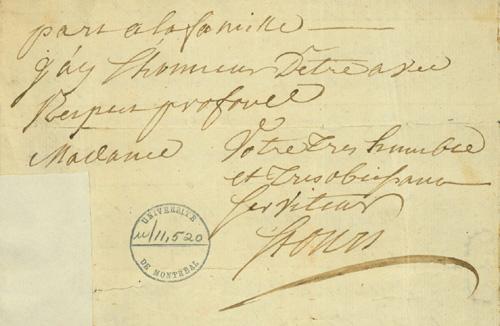 part a la famille
j'ay l'honneur D'etre avec
Respect profond
Madame Votre tres humble
et tres obeissant
Serviteur
UNIVERSITÉ
u/11,520
DE MONTRÉAL